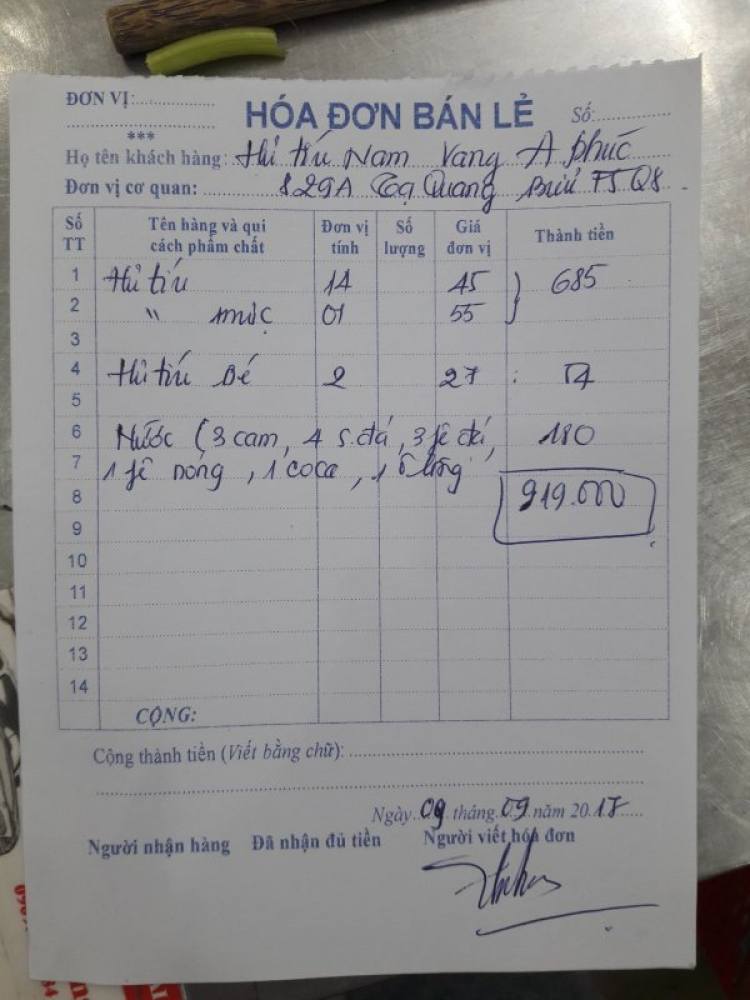 ĐƠN VỊ:
HÓA ĐƠN BÁN LẺ
Số:
***
Họ tên khách hàng: Hủ tiếu Nam Vang A Phúc
Đơn vị cơ quan: 829A Tạ Quang Bửu F5 Q8
Số TT Tên hàng và qui cách phẩm chất Đơn vị tính Số lượng Giá đơn vị Thành tiền
1 Hủ tiếu 14 45 } 685
2 " mực 01 55
3
4 Hủ tiếu Bé 2 27 : 54
5
6 Nước (3 cam, 4 s.đá, 3 fê đá, 180
7 1 fê nóng, 1 coca, 1 ô lông
8 919.000
9
10
11
12
13
14
CỘNG:
Cộng thành tiền (Viết bằng chữ):
Ngày 09 tháng 09 năm 2017
Người nhận hàng Đã nhận đủ tiền Người viết hóa đơn